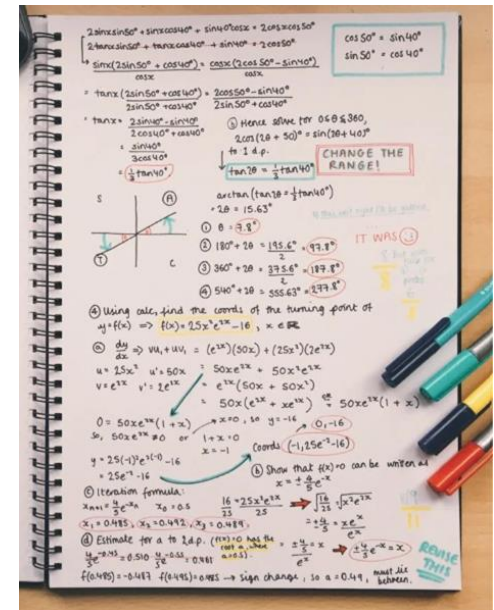 2sinxsin50° + sinxcos40° + sin40°cosx = 2cosxcos50°
2tanxsin50° + tanxcos40° + sin40° = 2cos50°
cos50° = sin40°
sin50° = cos40°
sinx(2sin50° + cos40°) = cosx(2cos50° - sin40°)
cosx cosx
= tanx(2sin50° + cos40°) = 2cos50° - sin40°
2sin50° + cos40° 2sin50° + cos40°
= tanx = 2sin40° - sin40°
2cos40° + cos40°
= sin40°
3cos40°
= 1/3 tan40°
Hence solve for 0≤θ≤360,
2cos(2θ + 50)° = sin(2θ + 40)°
to 1 d.p.
tan2θ = 1/3 tan40°
CHANGE THE
RANGE!
S A
T C
arctan(tan2θ = 1/3 tan40°)
= 2θ = 15.63°
① θ = 7.8°
② 180° + 2θ = 195.6° = 97.8°
2
③ 360° + 2θ = 375.6° = 187.8°
2
④ 540° + 2θ = 555.63° = 277.8°
IT WAS
④ Using calc, find the coords of the turning point of
y=f(x) => f(x) = 25x²e²ˣ - 16, x ∈ R
ⓐ dy/dx => vu₁ + uv₁ = (e²ˣ)(50x) + (25x²)(2e²ˣ)
u = 25x² u' = 50x = 50xe²ˣ + 50x²e²ˣ
v = e²ˣ v' = 2e²ˣ = e²ˣ(50x + 50x²)
= 50x(e²ˣ + xe²ˣ) or 50xe²ˣ(1 + x)
0 = 50xe²ˣ(1 + x) x=0, so y=-16 0,-16
So, 50xe²ˣ ≠ 0 or 1 + x = 0
x = -1
Coords (-1, 25e⁻² - 16)
y = 25(-1)²e²⁽⁻¹⁾ - 16
= 25e⁻² - 16
ⓑ Show that f(x)=0 can be written as
x = ± 4/5 e⁻ˣ
ⓒ Iteration formula:
xₙ₊₁ = 4/5 e⁻ˣⁿ x₀ = 0.5
x₁ = 0.485, x₂ = 0.492, x₃ = 0.489
16 = 25x²e²ˣ
25 25
√16/25 = √x²e²ˣ
= ± 4/5 = xeˣ
eˣ
= ± 4/5 = x
eˣ
± 4/5 e⁻ˣ = x
ⓓ Estimate for a to 2d.p. (f(x)=0 has the
root a, where
a=0.5)
REVISE
THIS
f(0.485) = -0.487 f(0.495) = 0.485 → sign change, so a = 0.49, must lie
between.